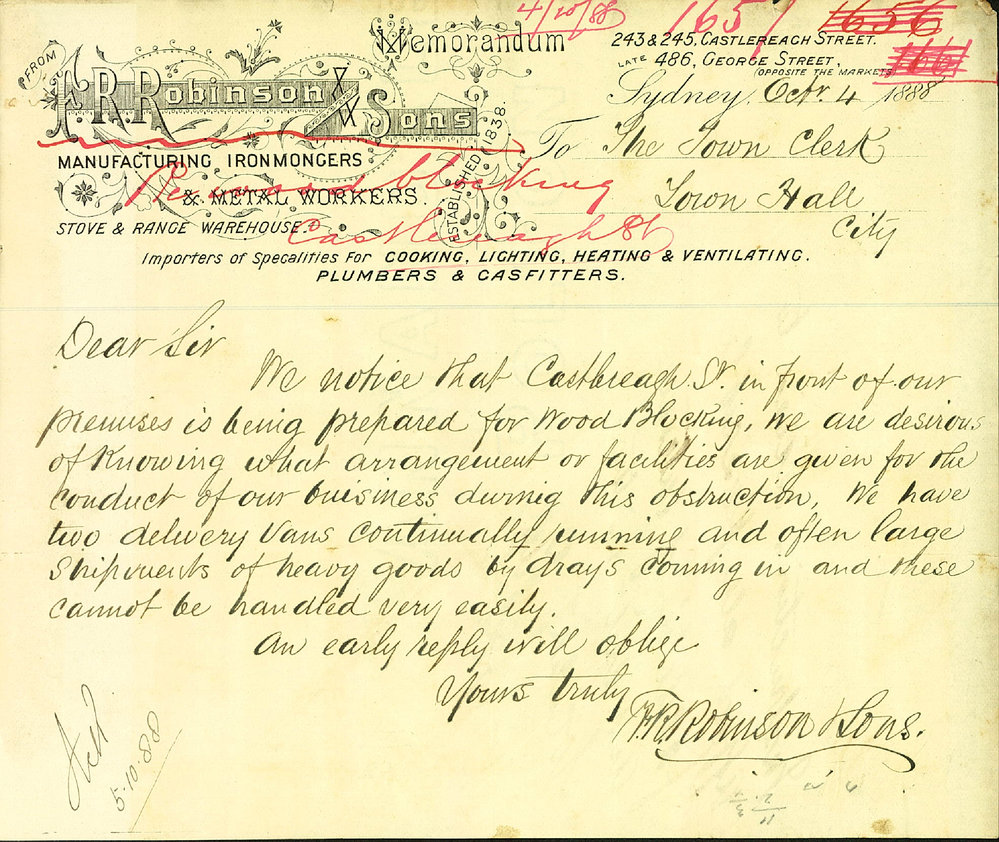 4/10/88 1657 1656
166
FROM
F. R. Robinson & Sons
Memorandum
243 & 245, CASTLEREAGH STREET.
LATE 486, GEORGE STREET,
(OPPOSITE THE MARKETS
Sydney, Octr. 4 1888
To The Town Clerk
Town Hall
City
ESTABLISHED 1838.
MANUFACTURING IRONMONGERS
& METAL WORKERS.
STOVE & RANGE WAREHOUSE.
blocking
Castlereagh St
Importers of Specalities For COOKING, LIGHTING, HEATING & VENTILATING.
PLUMBERS & GASFITTERS.
Dear Sir
We notice that Castlereagh St. in front of our
premises is being prepared for Wood Blocking, We are desirous
of Knowing what arrangement or facilities are given for the
conduct of our buisiness during this obstruction, We have
two delivery Vans continually running and often large
Shipments of heavy goods by drays coming in and these
cannot be handled very easily.
An early reply will oblige
Yours truly
F. R. Robinson & Sons.
5.10.88